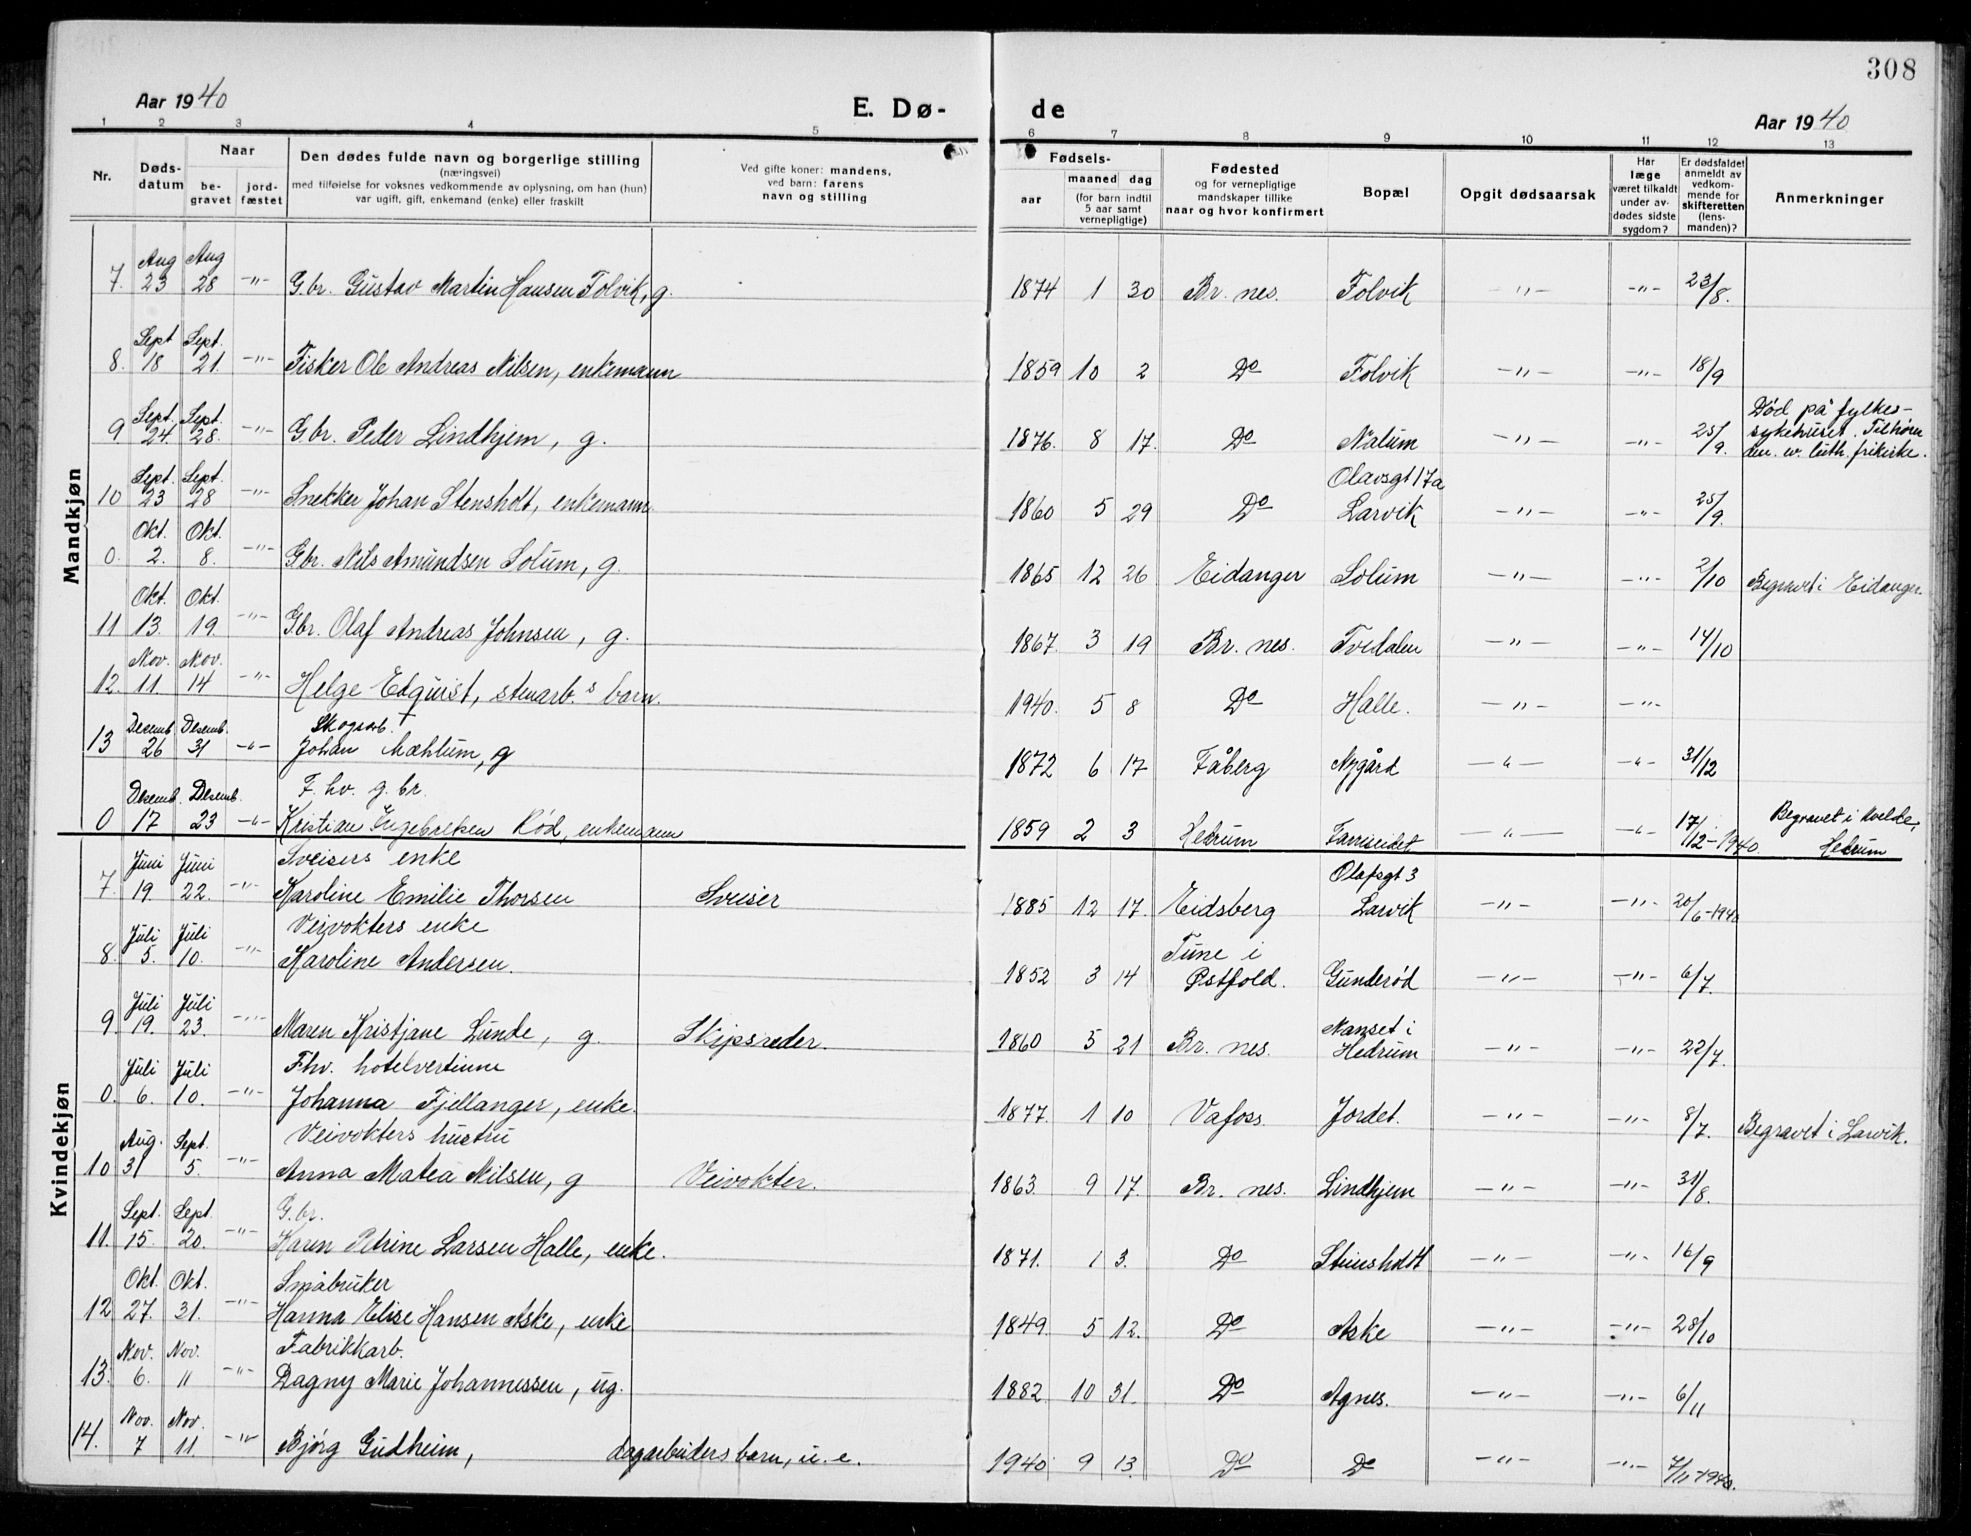 308
Aar 1940
E. Dø-
de
Aar 1940
1 2 3 4 5 6 7 8 9 10 11 12 13
Nr.
Døds-
datum
Naar
be-
gravet
jord-
fæstet
Den dødes fulde navn og borgerlige stilling
(næringsvei)
med tilføielse for voksnes vedkommende av oplysning, om han (hun)
var ugift, gift, enkemand (enke) eller fraskilt
Ved gifte koner: mandens,
ved barn: farens
navn og stilling
Fødsels-
aar
maaned dag
(for barn indtil
5 aar samt
vernepligtige)
Fødested
og for vernepligtige
mandskaper tillike
naar og hvor konfirmert
Bopæl
Opgit dødsaarsak
Har
læge
været tilkaldt
under av-
dødes sidste
sygdom?
Er dødsfaldet
anmeldt av
vedkom-
mende for
skifteretten
(lens-
manden)?
Anmerkninger
Mandkjøn
Aug Aug
7. 23 28 -"- G.br. Gustav Martin Hansen Folvik, g. 1874 1 30 Br. nes. Folvik -"- -"- 23/8.
Sept Sept.
8. 18 21. -"- Fisker Ole Andreas Nilsen, enkemann 1859 10 2 Do Folvik -"- -"- 18/9
Sept. Sept. Død på fylkes-
9 24. 28. -"- Gbr. Peder Lindhjem, g. 1876. 8 17. Do Nalum -"- -"- 25/9. sykehuset. Tilhører
den ev. luth. frikirke.
Sept. Sept. Olavsgt 17a
10 23 28 -"- Snekker Johan Stensholt, enkemann 1860 5 29 Do Larvik -"- -"- 25/9.
Okt. Okt.
0. 2. 8. -"- Gbr. Nils Amundsen Solum, g. 1865 12 26 Eidanger Solum -"- -"- 2/10 Begravet i Eidanger.
Okt. Okt.
11 13. 19. -"- Gbr. Olaf Andreas Johnsen, g. 1867. 3 19 Br. nes. Tvedalen -"- -"- 14/10
Nov. Nov.
12. 11. 14 -"- Helge Edquist, stenarb.s barn. 1940. 5 8 Do Halle. -"- -"-
Desemb. Desemb. Skogsarb.
13 26 31 -"- Johan Mæhlum, g 1872 6 17 Fåberg Nygård -"- -"- 31/12
Desemb. Desemb. F. hv. g. br.
0 17 23 -"- Kristian Engebretsen Rød, enkemann 1859 2 3 Hedrum Farriseidet -"- -"- 17/12-1940. Begravet i Kvelde,
Hedrum
Kvindekjøn
Juni Juni Sveisers enke Olafsgt 3
7. 19. 22. -"- Karoline Emilie Thorsen Sveiser 1885 12 17. Eidsberg Larvik -"- -"- 20/6-1940
Juli Juli Veivokters enke Tune i
8. 5. 10. -"- Karoline Andersen. 1852 3 14 Østfold. Gunderød -"- -"- 6/7.
Juli Juli Nanset i
9. 19. 23. -"- Maren Kristjane Lunde, g. Skipsreder. 1860 5 21 Br. nes. Hedrum -"- -"- 22/7.
Juli Juli Fhv. hotelvertinne
0. 6. 10. -"- Johanna Fjellanger, enke. 1877. 1 10 Vafoss. Jordet. -"- -"- 8/7. Begravet i Larvik.
Aug. Sept. Veivokters hustru
10 31 5. -"- Anna Matea Nilsen, g Veivokter. 1863. 9 17. Br. nes. Lindhjem -"- -"- 31/8.
Sept. Sept. G.br.
11. 15. 20. -"- Karen Petrine Larsen Halle, enke. 1871. 1 3. Do Stensholdt -"- -"- 16/9
Okt. Okt. Småbruker
12 27. 31. -"- Hanna Elise Hansen Aske, enke 1849. 5 12. Do Aske -"- -"- 28/10
Nov. Nov. Fabrikkarb.
13. 6. 11 -"- Dagny Marie Johannessen, ug. 1882 10 31. Do Agnes. -"- -"- 6/11
Nov. Nov.
14. 7 11. -"- Bjørg Gudheim, dagarbeiders barn, u. e. 1940 9 13. Do Do -"- -"- 7/11-1940.